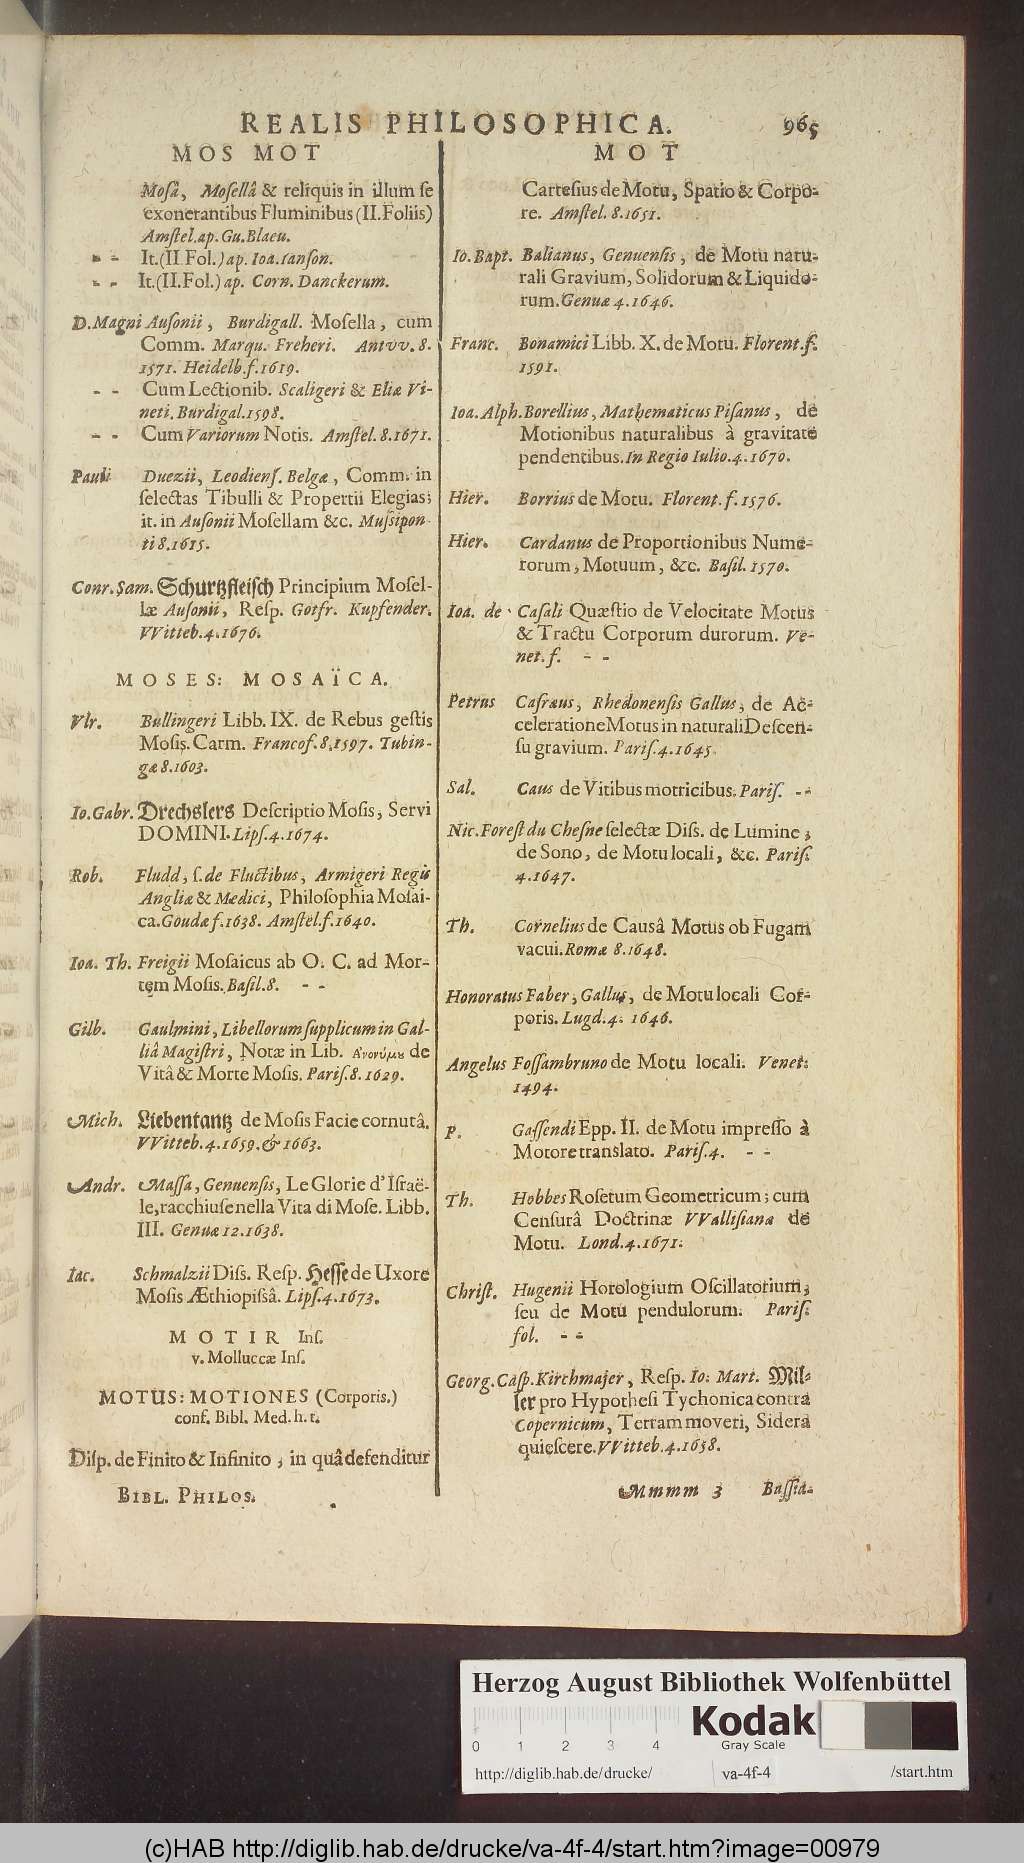 REALIS PHILOSOPHICA. 965
MOS MOT
Moſâ, Moſellâ & reliquis in illum ſe
exonerantibus Fluminibus (II. Foliis)
Amſtel. ap. Gu. Blaeu.
- - It. (II Fol.) ap. Ioa. Ianſon.
- - It. (II. Fol.) ap. Corn. Danckerum.
D. Magni Auſonii, Burdigall. Moſella, cum
Comm. Marqu. Freheri. Antvv. 8.
1571. Heidelb. f. 1619.
- - Cum Lectionib. Scaligeri & Eliæ Vi-
neti. Burdigal. 1598.
- - Cum Variorum Notis. Amſtel. 8. 1671.
Pauli Duezii, Leodienſ. Belgæ, Comm. in
ſelectas Tibulli & Propertii Elegias;
it. in Auſonii Moſellam &c. Muſsipon-
ti 8. 1615.
Conr. Sam. Schurtzfleiſch Principium Moſel-
læ Auſonii, Reſp. Gotfr. Kupfender.
VVitteb. 4. 1676.
MOSES: MOSAÏCA.
Vlr. Bullingeri Libb. IX. de Rebus geſtis
Moſis. Carm. Francof. 8. 1597. Tubin-
gæ 8. 1603.
Io. Gabr. Drechslers Deſcriptio Moſis, Servi
DOMINI. Lipſ. 4. 1674.
Rob. Fludd, ſ. de Fluctibus, Armigeri Regis
Angliæ & Medici, Philoſophia Moſai-
ca. Goudæ f. 1638. Amſtel. f. 1640.
Ioa. Th. Freigii Moſaicus ab O. C. ad Mor-
tem Moſis. Baſil. 8. - -
Gilb. Gaulmini, Libellorum ſupplicum in Gal-
liâ Magiſtri, Notæ in Lib. Ἀνονύμȣ de
Vitâ & Morte Moſis. Pariſ. 8. 1629.
Mich. Liebentantz de Moſis Facie cornutâ.
VVitteb. 4. 1659. & 1663.
Andr. Maſſa, Genuenſis, Le Glorie d'Iſraë-
le, racchiuſe nella Vita di Moſe. Libb.
III. Genuæ 12. 1638.
Iac. Schmalzii Diſſ. Reſp. Heſſe de Uxore
Moſis Æthiopiſsâ. Lipſ. 4. 1673.
MOTIR Inſ.
v. Molluccæ Inſ.
MOTUS: MOTIONES (Corporis.)
conf. Bibl. Med. h. t.
Diſp. de Finito & Infinito, in quâ defenditur
BIBL. PHILOS.
MOT
Carteſius de Motu, Spatio & Corpo-
re. Amſtel. 8. 1651.
Io. Bapt. Balianus, Genuenſis, de Motu natu-
rali Gravium, Solidorum & Liquido-
rum. Genuæ 4. 1646.
Franc. Bonamici Libb. X. de Motu. Florent. f.
1591.
Ioa. Alph. Borellius, Mathematicus Piſanus, de
Motionibus naturalibus à gravitate
pendentibus. In Regio Iulio. 4. 1670.
Hier. Borrius de Motu. Florent. f. 1576.
Hier. Cardanus de Proportionibus Nume-
rorum, Motuum, &c. Baſil. 1570.
Ioa. de Caſali Quæſtio de Velocitate Motus
& Tractu Corporum durorum. Ve-
net. f. - -
Petrus Caſræus, Rhedonenſis Gallus, de Ac-
celeratione Motus in naturali Deſcen-
ſu gravium. Pariſ. 4. 1645.
Sal. Caus de Vitibus motricibus. Pariſ. - -
Nic. Foreſt du Cheſne ſelectæ Diſſ. de Lumine,
de Sono, de Motu locali, &c. Pariſ.
4. 1647.
Th. Cornelius de Causâ Motus ob Fugam
vacui. Romæ 8. 1648.
Honoratus Faber, Gallus, de Motu locali Cor-
poris. Lugd. 4. 1646.
Angelus Foſſambruno de Motu locali. Venet.
1494.
P. Gaſſendi Epp. II. de Motu impreſſo à
Motore translato. Pariſ. 4. - -
Th. Hobbes Roſetum Geometricum; cum
Cenſurâ Doctrinæ VValliſianæ de
Motu. Lond. 4. 1671.
Chriſt. Hugenii Horologium Oſcillatorium;
ſeu de Motu pendulorum. Pariſ.
fol. - -
Georg. Caſp. Kirchmajer, Reſp. Io. Mart. Mil-
ler pro Hypotheſi Tychonica contra
Copernicum, Terram moveri, Sidera
quieſcere. VVitteb. 4. 1658.
Mmmm 3 Baſſia-
Herzog August Bibliothek Wolfenbüttel
Kodak
Gray Scale
0 1 2 3 4
http://diglib.hab.de/drucke/ va-4f-4 /start.htm
(c)HAB http://diglib.hab.de/drucke/va-4f-4/start.htm?image=00979